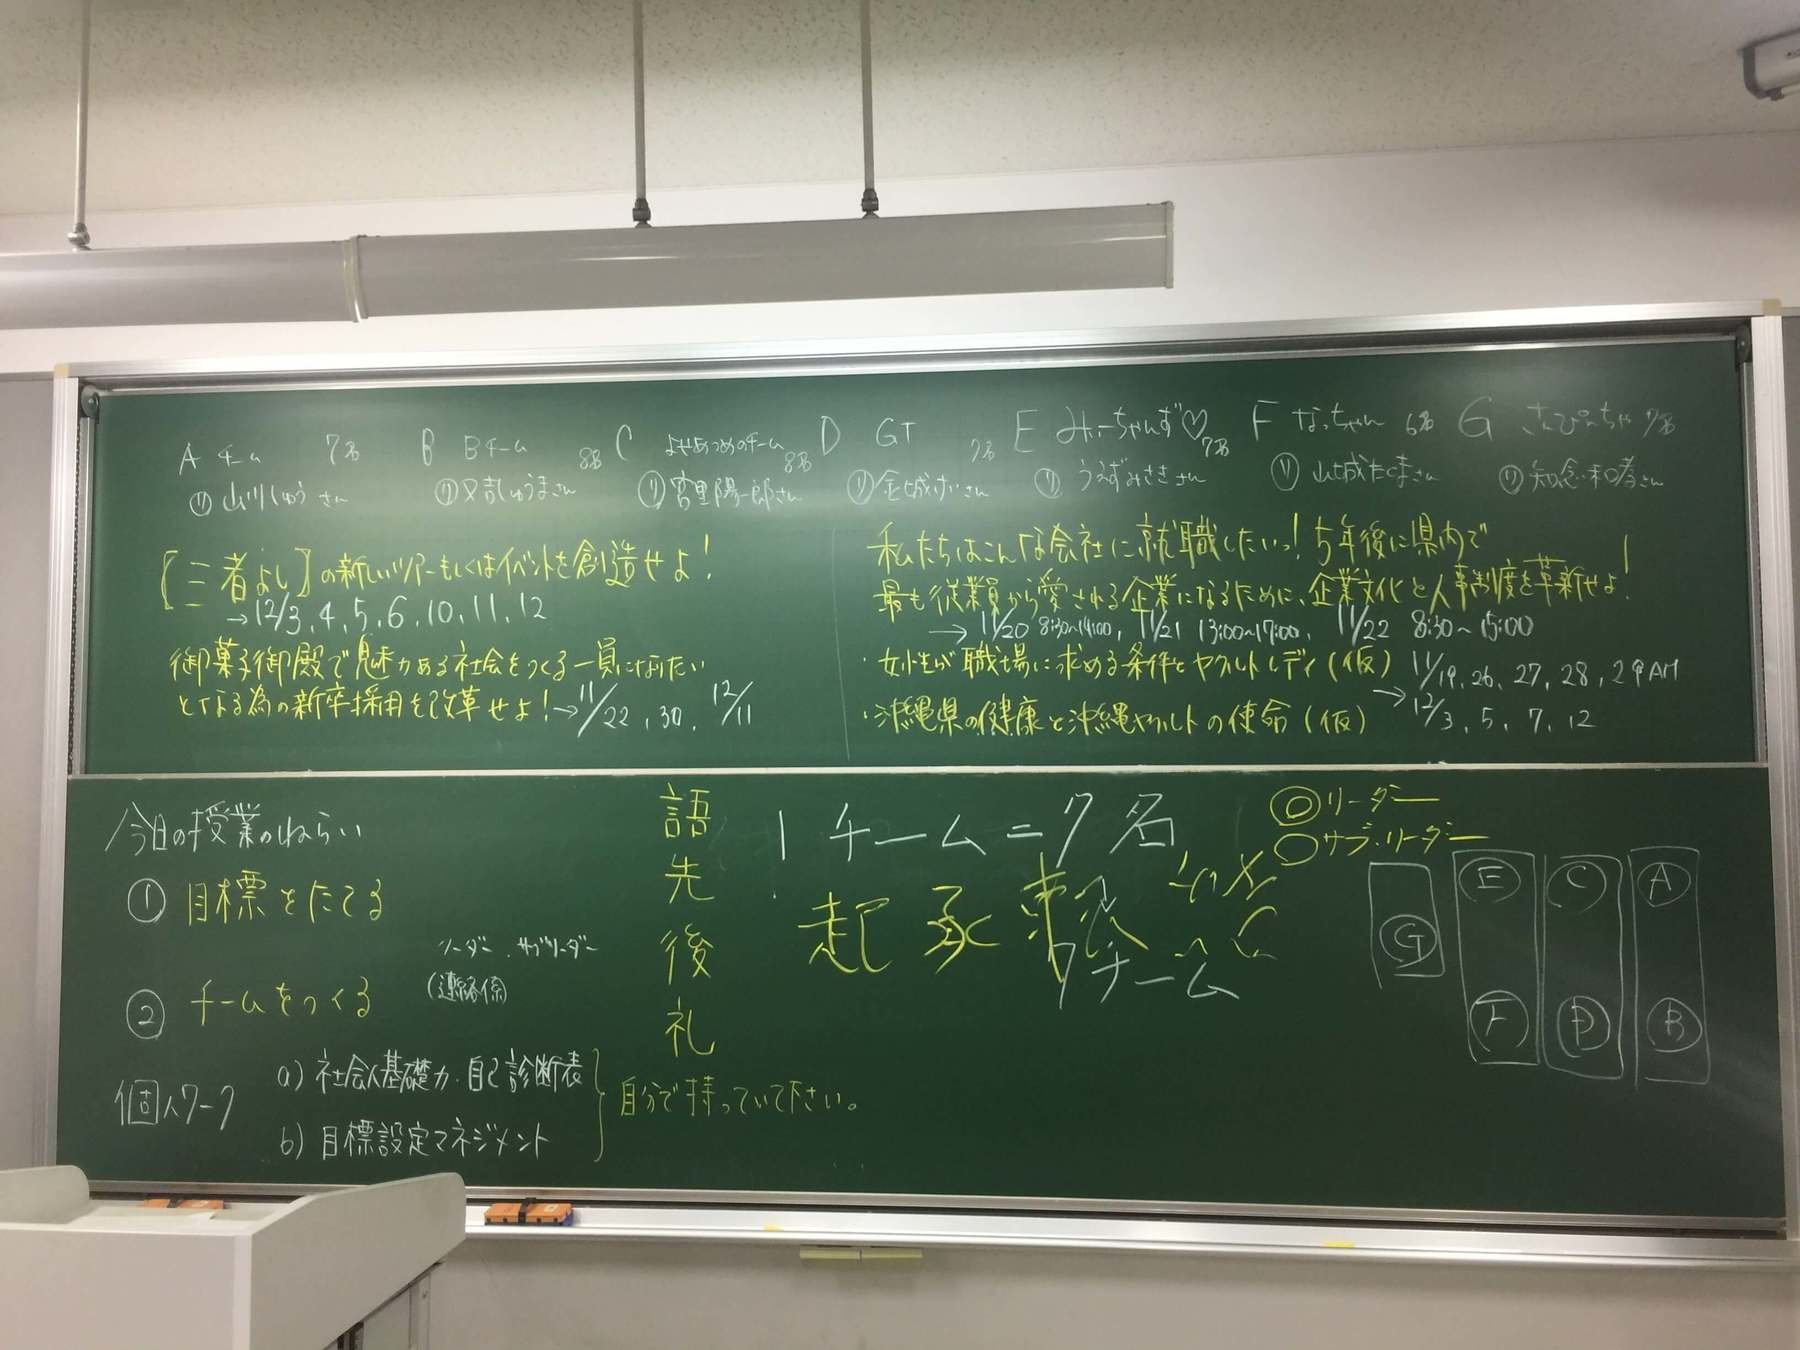 A チーム 7名 B Bチーム 8名 C よせあつめのチーム 8名 D GT 7名 E みーちゃんず♡ 7名 F なっちゃん 6名 G さんぴんちゃ 7名
㋷ 山川しゅうさん ㋷ 又吉しゅうまさん ㋷ 宮里陽一郎さん ㋷ 金城 さん ㋷ うえずみさきさん ㋷ 山城たくまさん ㋷ 知念 和孝さん
〖三者よし〗の新しいツアーもしくはイベントを創造せよ!
→12/3, 4, 5, 6, 10, 11, 12
御菓子御殿で魅力ある社会をつくる一員になりたい
となる為の新卒採用を改革せよ!→11/22, 30, 12/11
私たちはこんな会社に就職したいっ! 5年後に県内で
最も従業員から愛される企業になるために、企業文化と人事制度を革新せよ!
→ 11/20 8:30~14:00, 11/21 13:00~17:00, 11/22 8:30~15:00
・女性が職場に求める条件とヤクルトレディ(仮) 11/19, 26, 27, 28, 29AM
・沖縄県の健康と沖縄ヤクルトの使命(仮) → 12/3, 5, 7, 12
今日の授業のねらい
① 目標をたてる
② チームをつくる
リーダー・サブリーダー
(連絡係)
個人ワーク
a) 社会人基礎力・自己診断表
b) 目標設定マネジメント
自分で持っていて下さい。
語先後礼
1チーム=7名
起承転結
7チーム
◎リーダー
○サブ・リーダー
E C A
G
F D B